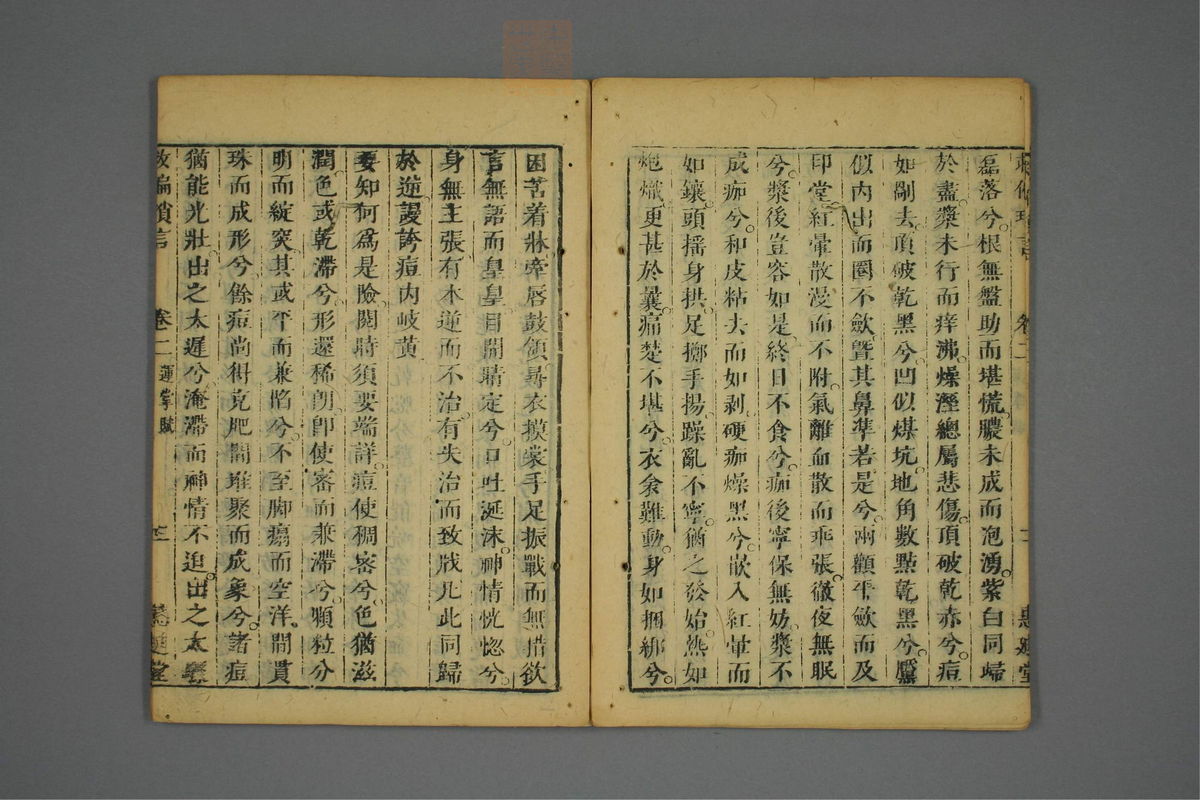 磊落兮根無盤助而堪慌膿未成而泡湧紫白同歸
於盡漿未行而痒沸燥溼總屬悲傷頂破乾赤兮痘
如剮去頂破乾黑兮凹似煤坑地角數點乾黑兮靨
似内出而圈不歛暨其鼻準若是兮兩顴平歛而及
印堂紅暈散漫而不附氣離血散而乖張徹夜無眠
兮漿後豈容如是終日不食兮痂後寧保無妨漿不
成痂兮和皮粘去而如剥硬痂燥黑兮嵌入紅暈而
如鑲頭揺身拱足擲手揚躁亂不寧猶之發始熱如
炮熾更甚於曩痛楚不堪兮衣衾難動身如捆綁兮
困苦着牀牽唇鼓頷尋衣摸裳手足振戰而無措欲
言無語而皇皇目開睛定兮口吐涎沫神情恍惚兮
身無主張有本逆而不治有失治而致戕凡此同歸
於逆謾誇痘内岐黄
要知何爲是險閱時須要端詳痘使稠宻兮色猶滋
潤色或乾滯兮形還稀朗即使宻而兼滯兮顆粒分
明而綻突其或平而兼陷兮不至脚塌而空洋間貫
珠而成形兮餘痘尚得克肥間堆聚而成象兮諸痘
猶能光壯出之太遲兮淹滯而神情不迫出之太驟
卷二 運掌賦